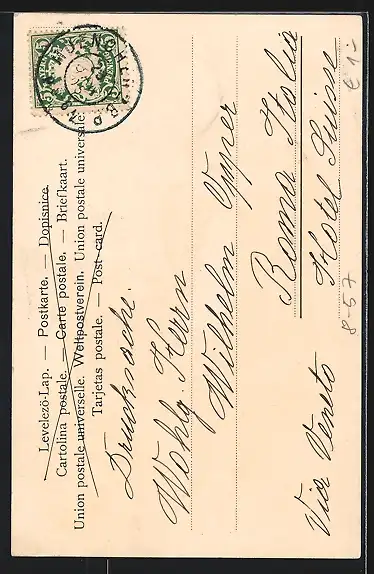 Levelező-Lap. — Postkarte. — Dopisnice
Cartolina postale. — Carte postale. — Briefkaart.
Union postale universelle. Weltpostverein. Union postale universale.
Tarjetas postale. — Post card.
Drucksache.
Wohlg. Herrn
Wilhelm
Roma Italia
Hotel Suisse
Via Veneto
8-57
€ 1-